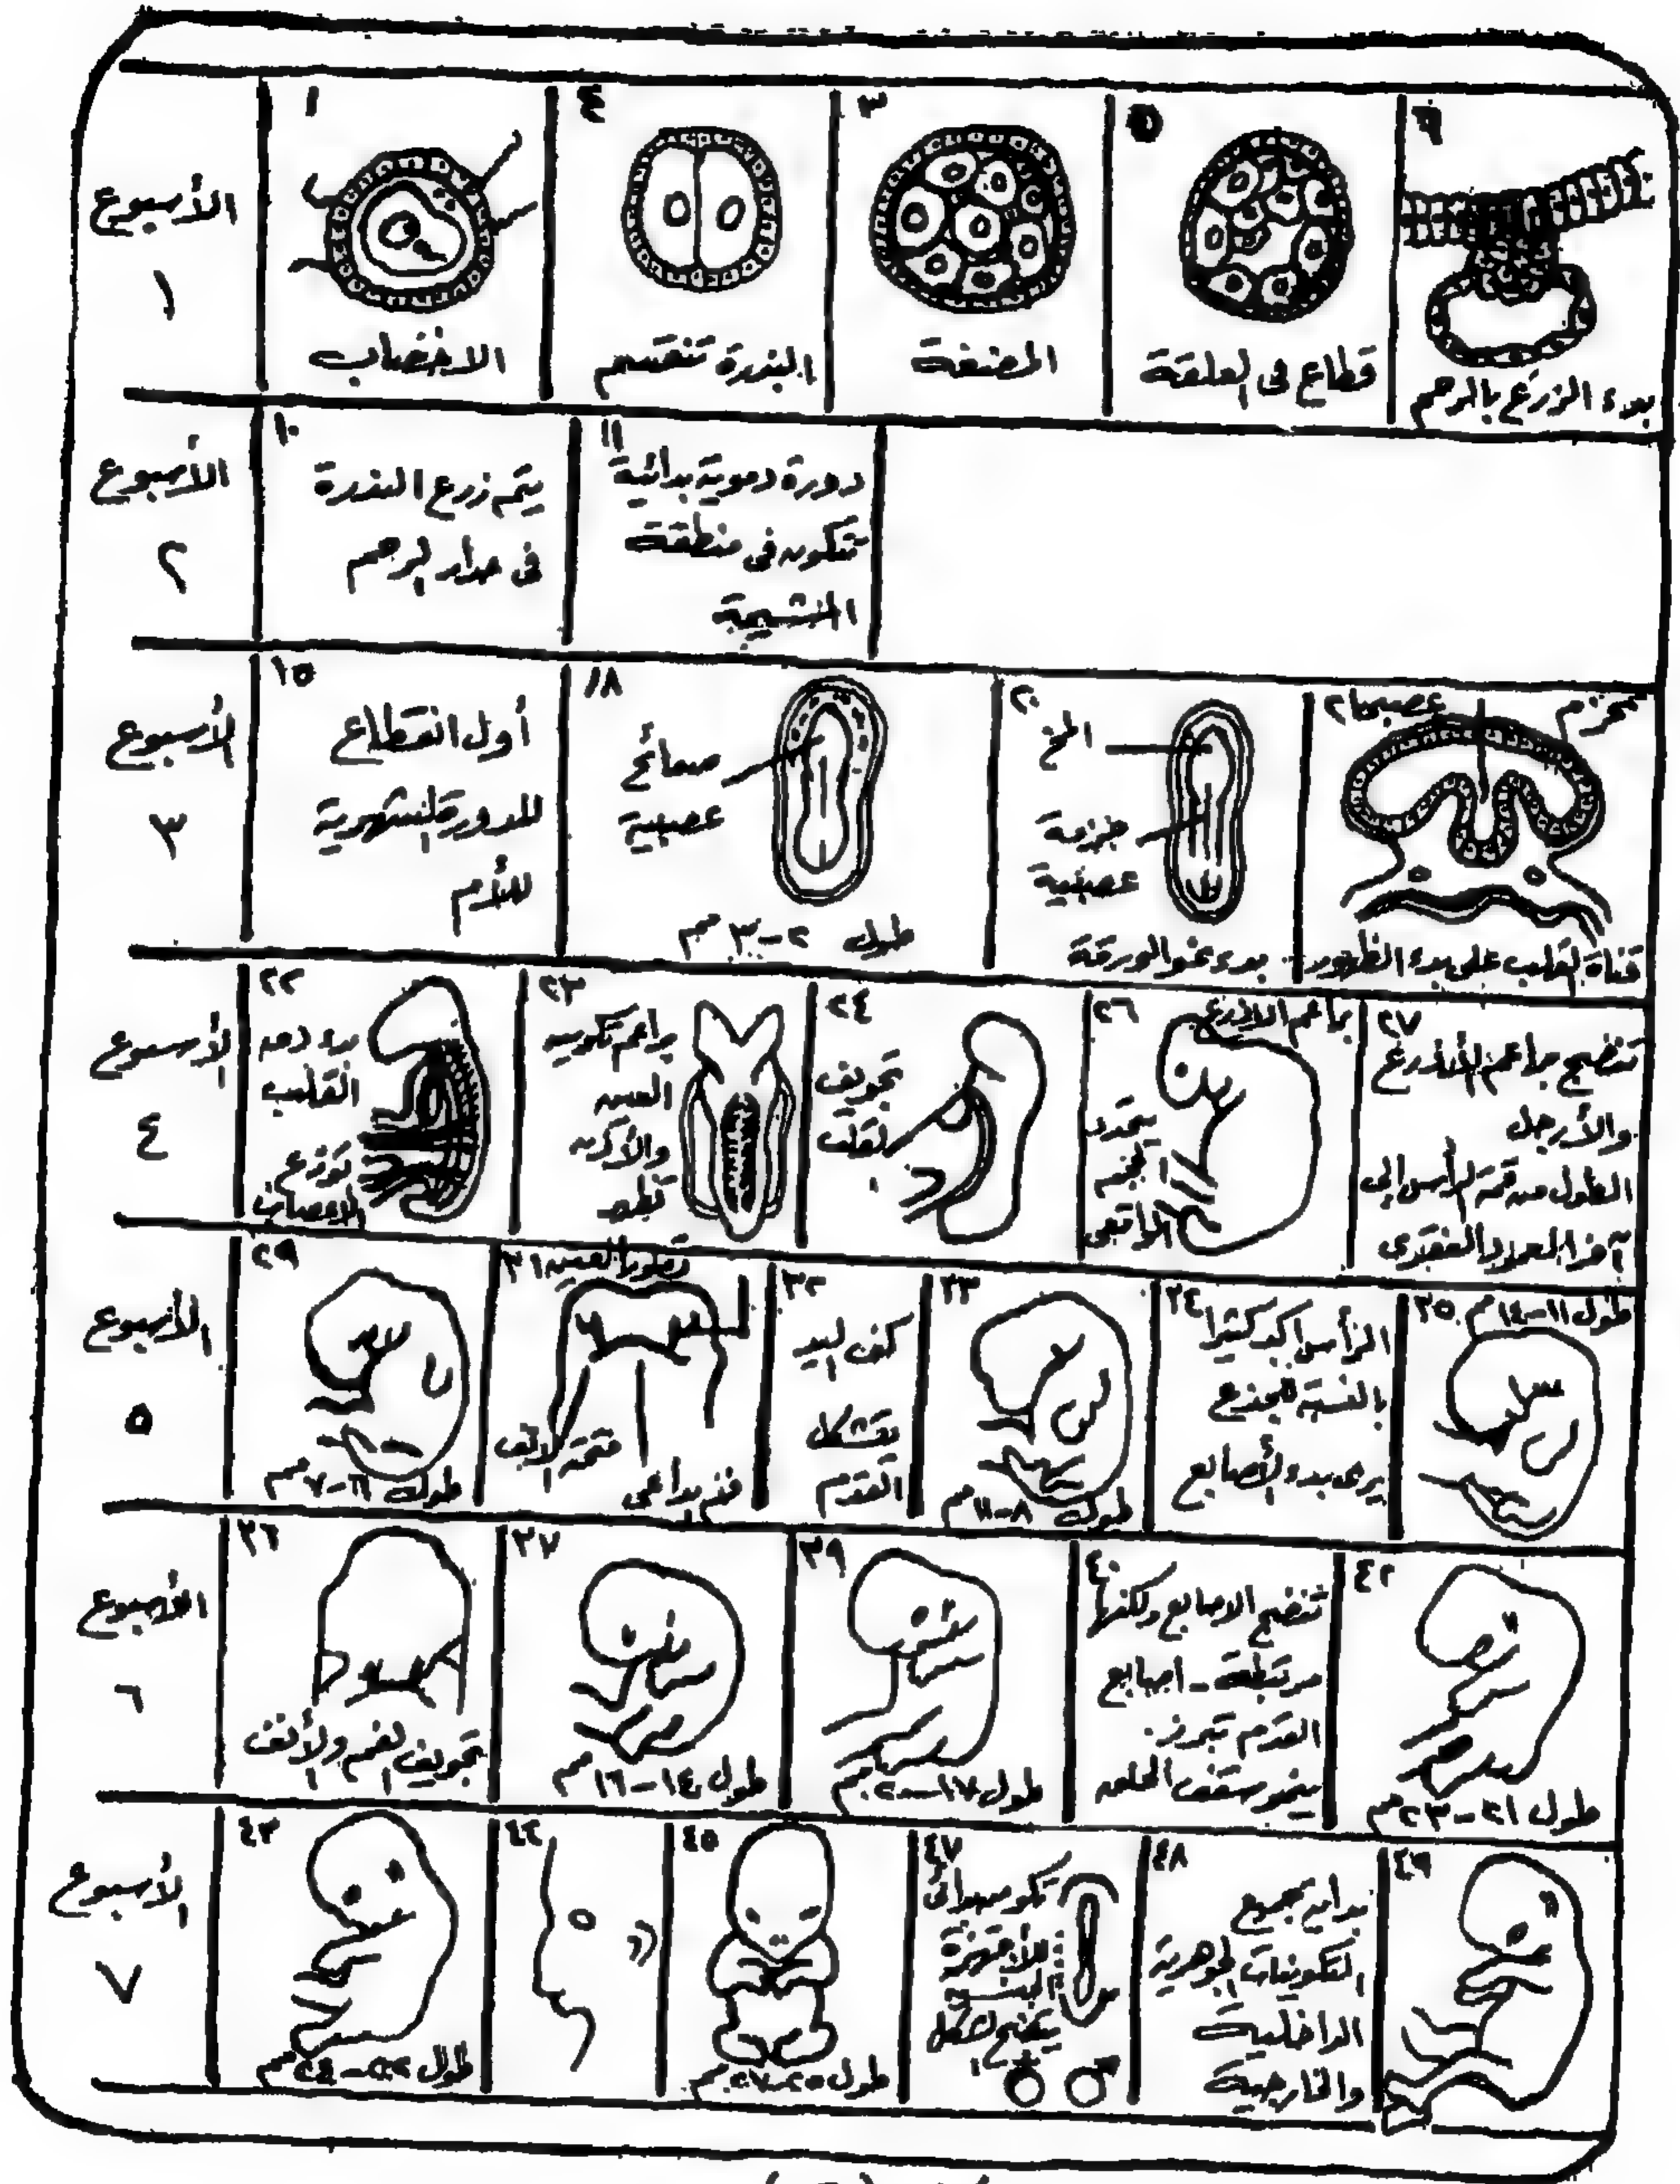 الأسبوع
١
١
الاخصاب
٤
البذرة تنقسم
٣
المضغة
٥
قطاع فى العلقة
٦
بدء الزرع بالرحم
الأسبوع
٢
١٠
يتم زرع البذرة
فى جدار الرحم
١١
دورة دموية بدائية
تتكون فى منطقة
المشيمة
الأسبوع
٣
١٥
أول انقطاع
للدورة الشهرية
للأم
١٨
صفائح
عصبية
طول ٢-٣ مم
٢٠
المخ
حزمة
عصبية
بدء نمو الورقة
قناة القلب على بدء الظهور
الأسبوع
٤
٢٢
بدء دق
القلب
توزع
الاعصاب
٢٣
براعم تكوين
العين
والأذن
تظهر
٢٤
تجويف
القلب
٢٦
براعم الاذرع
٢٧
تتضح براعم الأذرع
والأرجل
الطول من قمة الرأس إلى
آخر العمود الفقرى
الأسبوع
٥
٢٩
طول ٦-٧ مم
٣١
فتحة الانف
فم بدائى
٣٢
كف اليد
يتشكل
القدم
٣٣
طول ٨-١١ مم
٣٤
الرأس اكبر كثيرا
بالنسبة للجذع
يرى بدء الأصابع
٣٥
طول ١١-١٤ مم
الأسبوع
٦
٣٦
تجويف الفم والأنف
٣٧
طول ١٤-١٦ مم
٣٩
طول ١٧-٢٠ مم
٤٠
تتضح الاصابع ولكنها
مرتبطة - اصابع
القدم تبرز.
ينمو سقف الحلق
٤٢
طول ٢١-٢٣ مم
الأسبوع
٧
٤٣
طول ٢٢-٢٤ مم
٤٤
٤٥
طول ٢٥-٢٧ مم
٤٧
للأجهزة
يتضح لشكل
٤٨
التكوينات الجوهرية
الداخلية
والخارجية
٤٩